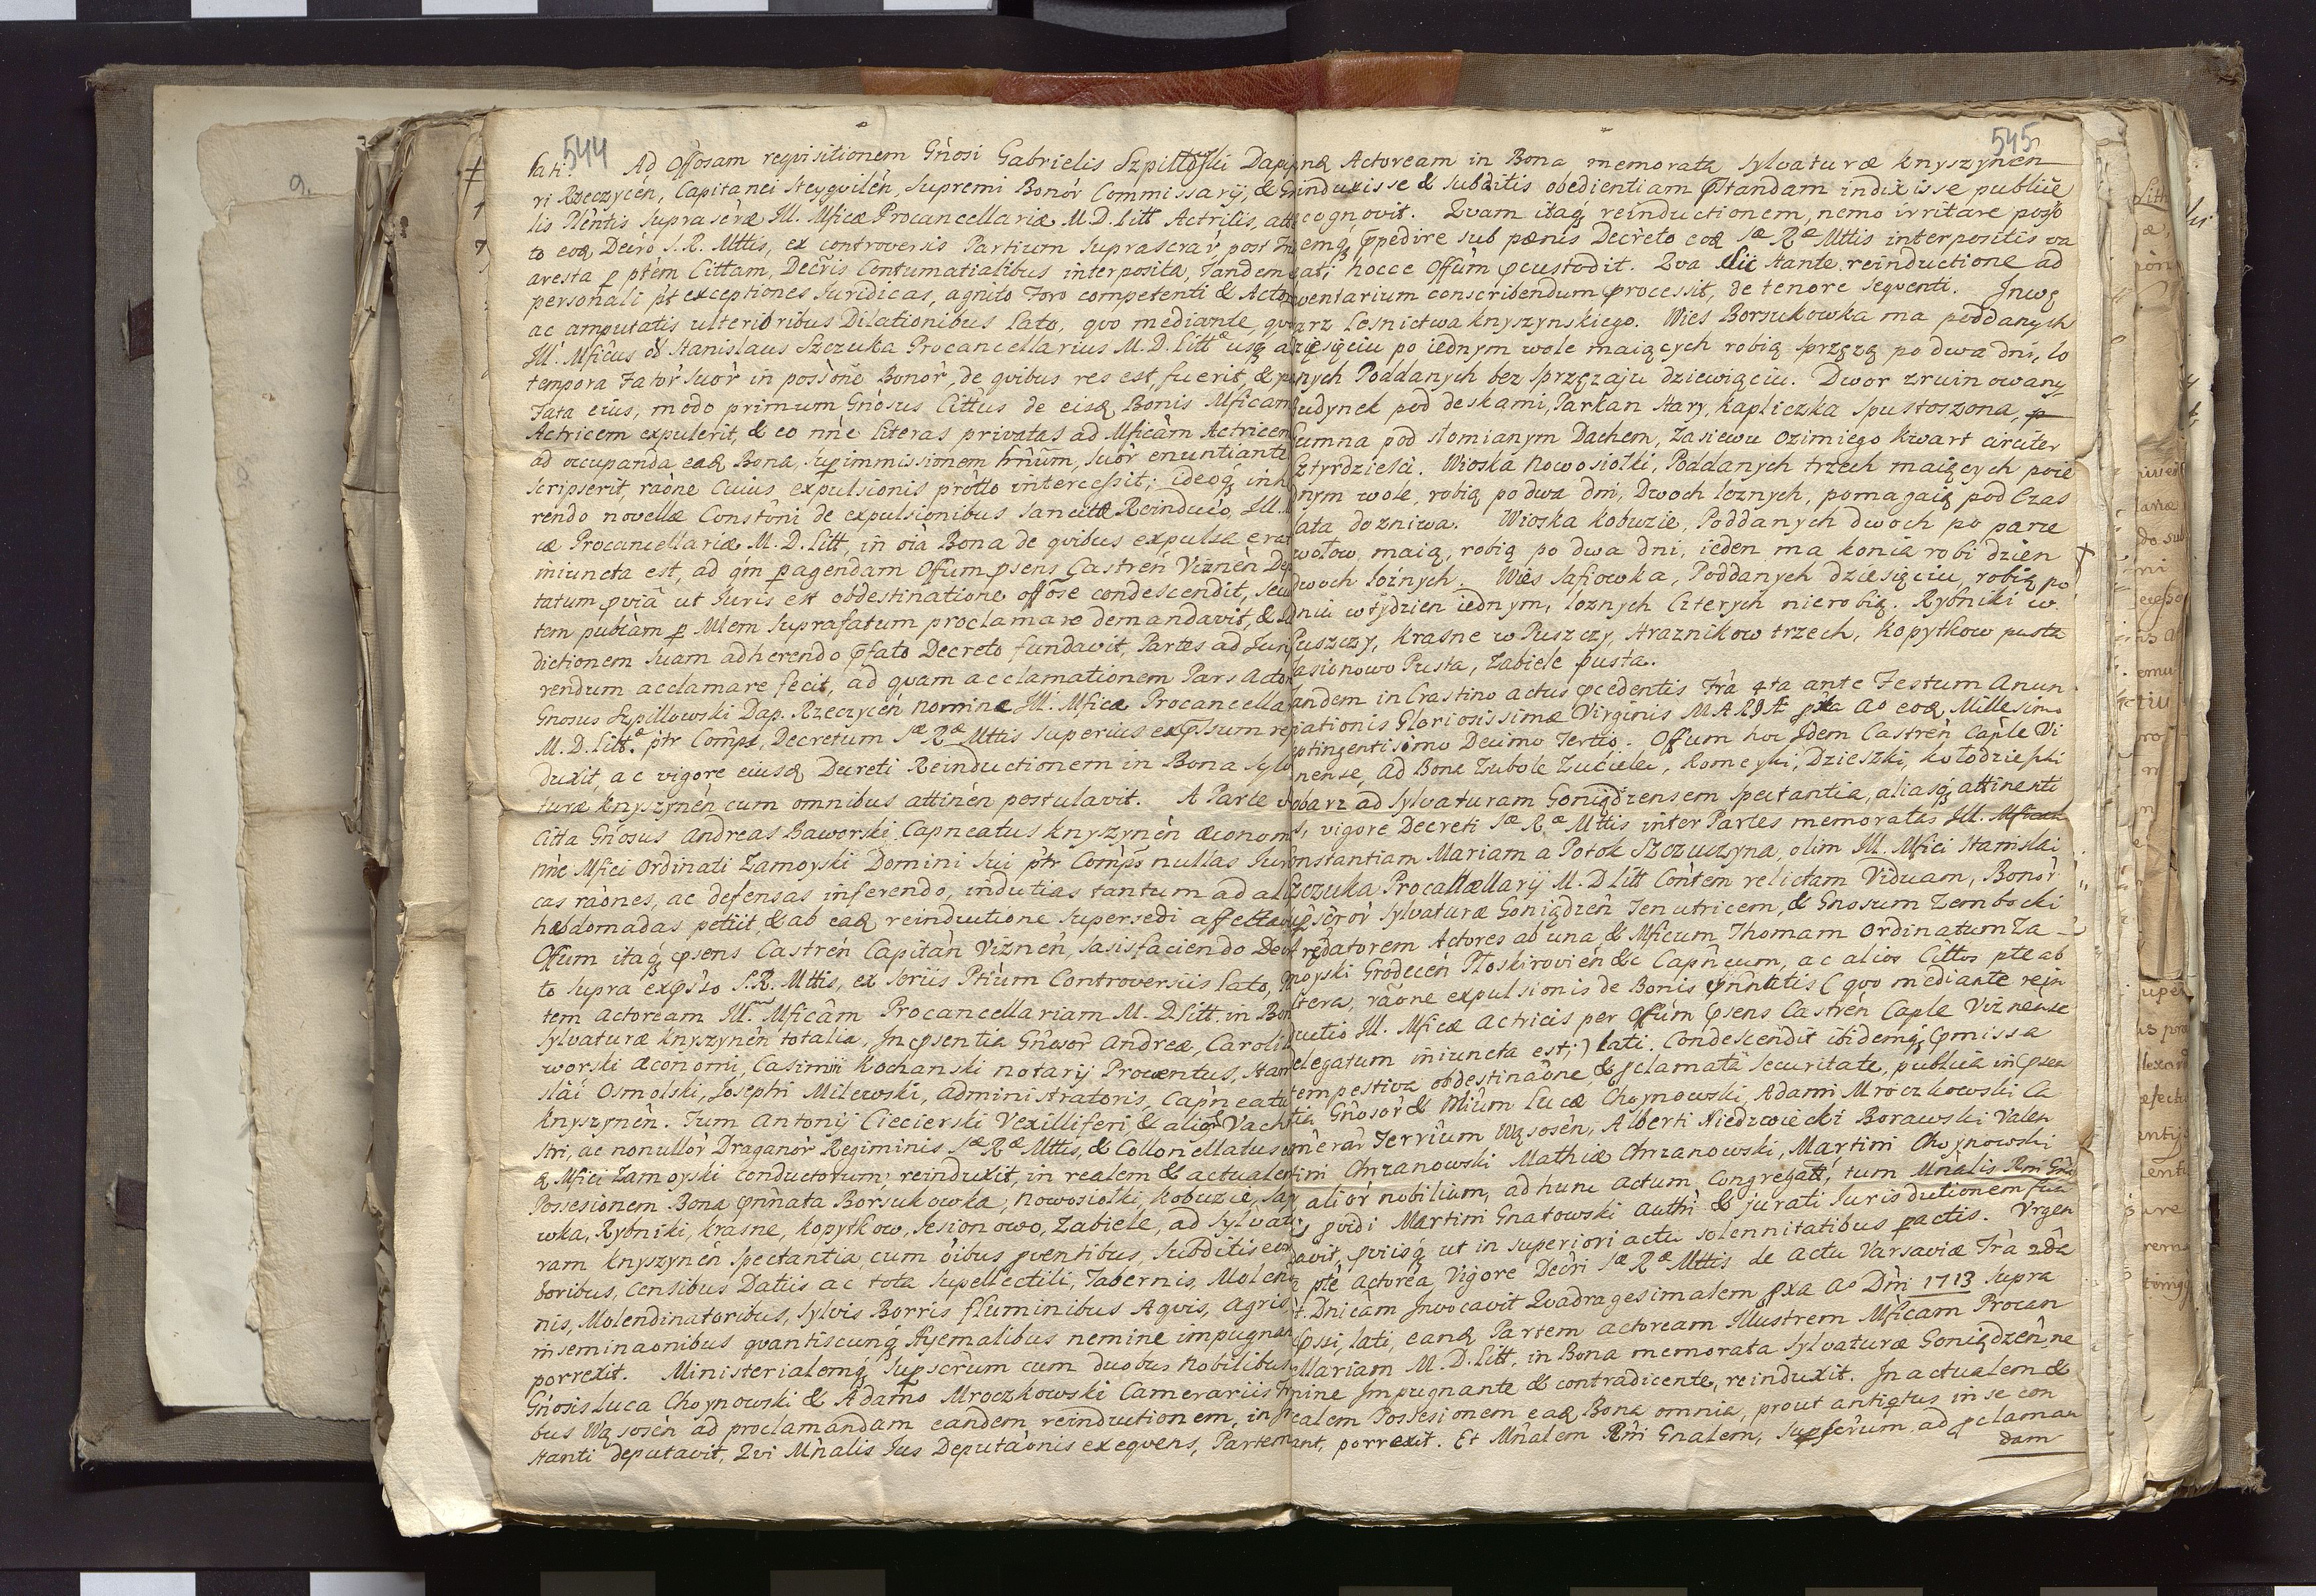 544
lati. Ad Offosam reqvisitionem Gnosi Gabrielis Szpillowski Dapi
ri Rzeczycen, Capitanei Steygvilen, Supremi Bonor Commissarij, & G
lis Plentis Suprascræ Ill. Mficæ Procancellariæ M. D. Litt Actricis,
to eoq Decro S. R. Mttis, ex controversis Partium Suprascrar, post
aresta p ptem Cittam, Decris Contumatialibus interposita, Tandem
personali pt exceptiones Iuridicas, agnito Foro competenti & Acto
ac amputatis ulterioribus Dilationibus Lato, qvo mediante,
Ill. Mficus Stanislaus Szczuka Procancellarius M. D. Litt usq a
tempora Fator suor in possone Bonor, de qvibus res est, fuerit, &
Fata eius, modo primum Gnosus Cittus de eisq Bonis Mficam
Actricem expulerit, & eo nne literas privatas ad Mficam Actricem
ad occupanda eaq Bona, sup immissionem hnum, suor enuntiante
scripserit, raone cuius expulsionis protto intercessit; ideoq inh
rendo novellæ Constoni de expulsionibus sancitæ Reinductio, Ill.
cæ Procancellariæ M. D. Litt, in oia Bona de qvibus expulsa erat
iniuncta est, ad qm pagendam Offum psens Castren Viznen De
tatum pviâ ut Iuris est obdestinatione offose condescendit, secu
tem publcam p Mlem suprafatum proclamare demandavit, &
dictionem suam adherendo pfato Decreto fundavit, Partes ad Iun
rendum acclamare fecit, ad qvam acclamationem Pars Acto
Gnosus Szpillowski Dap. Rzeczycen nomine Ill. Mficæ Procancella
M. D. Litt. ptr Comps, Decretum Sæ Ræ Mttis superius expssum re
duxit, ac vigore eiusq Decreti Reinductionem in Bona Sylva
turæ Knyszynen cum omnibus attinen postulavit. A Parte v
Citta Gnosus Andreas Baworski Capneatus Knyszynen œconom
nne Mfici Ordinati Zamoyski Domini sui ptr Comps nullas Iuri
cas raones, ac defensas inferendo, indutias tantum ad ali
hebdomadas petiit, & ab eaq reinductione supersedi affectav
Offum itaq psens Castren Capitan Viznen, satisfaciendo De
to supra expsso S. R. Mttis, ex soriis Ptium Controversiis lato,
tem Actoream Ill. Mficam Procancellariam M. D. Litt. in Bon
Sylvaturæ Knyszynen totalia, In psentia Gnosor Andreæ, Caroli
worski œconomi, Casimiri Kochanski notarij Proventus, Stan
slai Osmolski, Josephi Milewski, administratoris, Capneatu
Knyszynen. Tum Antonij Ciecierski Vexilliferi, & alior Vach
stri, ac nonullor Draganor Regiminis Sæ Ræ Mttis, & Collonellatus
& Mfici Zamoyski conductorum; reinduxit, in realem & actualem
Possesionem Bona pnnata Borsukowka, Nowosiołki, Kobuzie, Saf
wka, Rybniki, Krasne, Kopytkow, Jesionowo, Zabiele, ad Sylvatu
ram Knyszynen spectantia, cum oibus pventibus, Subditis eor
boribus, Censibus Datiis ac tota Supellectili, Tabernis, Molen
nis, Molendinatoribus, Sylvis Borris fluminibus Aqvis, agris,
inseminaonibus qvantiscunq Hyemalibus nemine impugnan
porrexit. Ministerialemq supscrum cum duobus Nobilibus
Gnosis Luca Choynowski & Adamo Mroczkowski Camerariis
bus Wąsosen ad proclamandam eandem reinductionem, in
stanti deputavit, Qvi Mnalis Ius Deputaonis exeqvens, Partem
545
Actoream in Bona memorata Sylvaturæ Knyszynen
induxisse & subditis obedientiam pstandam indixisse publice
cognovit. Qvam itaq reinductionem, nemo irritare posso
emq ppedire sub pænis Decreto eoq Sæ Ræ Mttis interpositis va
ati hocce Offum pcustodit. Qva sic stante reinductione ad
ventarium conscribendum processit, de tenore seqventi. Inwę
arz Lesnictwa Knyszynskiego. Wies Borsukowka ma poddanych
zięsięciu po iednym wole maiących robią sprzęzą po dwa dni, lo
nych Poddanych bez sprzęzaju dziewięciu. Dwor zruinowany
udynek pod deskami, Parkan stary, Kapliczka spustoszona,
umna pod słomianym Dachem, Zasiewu ozimiego kwart circiter
cztyrdziesci. Wioska Nowosiołki, Poddanych trzech maiących poie
dnym wole, robią po dwa dni, Dwoch loznych, pomagaią pod Czas
lata do zniwa. Wioska Kobuzie, Poddanych dwoch po parze
wołow, maią, robią po dwa dni, ieden ma konia robi dzien
dwoch loznych. Wies Safiowka, Poddanych dziesięciu, robią po
dniu w tydzien iednym, loznych Czterych nierobią. Rybniki w
Puszczy, Krasne w Puszczy, straznikow trzech, Kopytkow pusta
Jasionowo Pusta, Zabiele pusta.
Tandem in Crastino actus pcedentis Fra 4ta ante Festum Anun
tiationis Gloriosissimæ Virginis MARIÆ pxa Ao eoq Millesimo
ptingentisimo Decimo Tertio. Offum hoc Idem Castren Caple Vi
nense, ad Bona Zubole Zucielec, Komeyki, Dzieszki, Kołodzieyski
obarz ad Sylvaturam Goniądzensem spectantia, aliasq attinenti
s, vigore Decreti Sæ Ræ Mttis inter Partes memoratas Ill. Mficam
Constantiam Mariam a Potok Szczuczyna, olim Ill. Mfici Stanislai
Szczuka Procancellarij M. D Litt Contem relictam Viduam, Bonor
supscror Sylvaturæ Goniądzen Tenutricem, & Gnosum Zembocki
Arędatorem Actores ab una & Mficum Thomam Ordinatum Za-
moyski Grodecen Płoskirovien &c Capneum, ac alios Cittos pte ab
ltera, raone expulsionis de Bonis pnnttis (qvo mediante rein
ductio Ill. Mficæ Actricis per Offum psens Castren Caple Viznense
elegatum iniuncta est;) lati. Condescendit ibidemq pmissa
tempestiva obdestinaone, & pclamata securitate, publica in psen
tia Gnosor & Nlium Lucæ Choynowski, Adami Mroczkowski Ca
merar Terrium Wąsosen, Alberti Niedzwiecki Borawski Valen
tini Chrzanowski Mathiæ Chrzanowski, Martini Choynowski
alior nobilium, ad hunc actum Congregati, tum Mnalis Rni Gnlis
pvidi Martini Gnatowski authi & jurati Iurisdictionem fun
avit, pviisq ut in superiori actu solennitatibus pactis. Vrgen
pte Actorea Vigore Decri Sæ Ræ Mttis de actu Varsaviæ Fra 2da
t Dnicam Invocavit Qvadragesimalem pxa Ao Dni 1713 supra
xpssi, lati, eanq Partem actoream Illustrem Mficam Procan
ellariam M. D. Litt, in Bona memorata Sylvaturæ Goniądzen, ne
mine Impugnante & contradicente, reinduxit. In actualem &
realem Possesionem eaq Bona omnia, prout antiqtus in se con
ant, porrexit. Et Mnalem Rni Gnalem, supscrum ad pclaman
dam